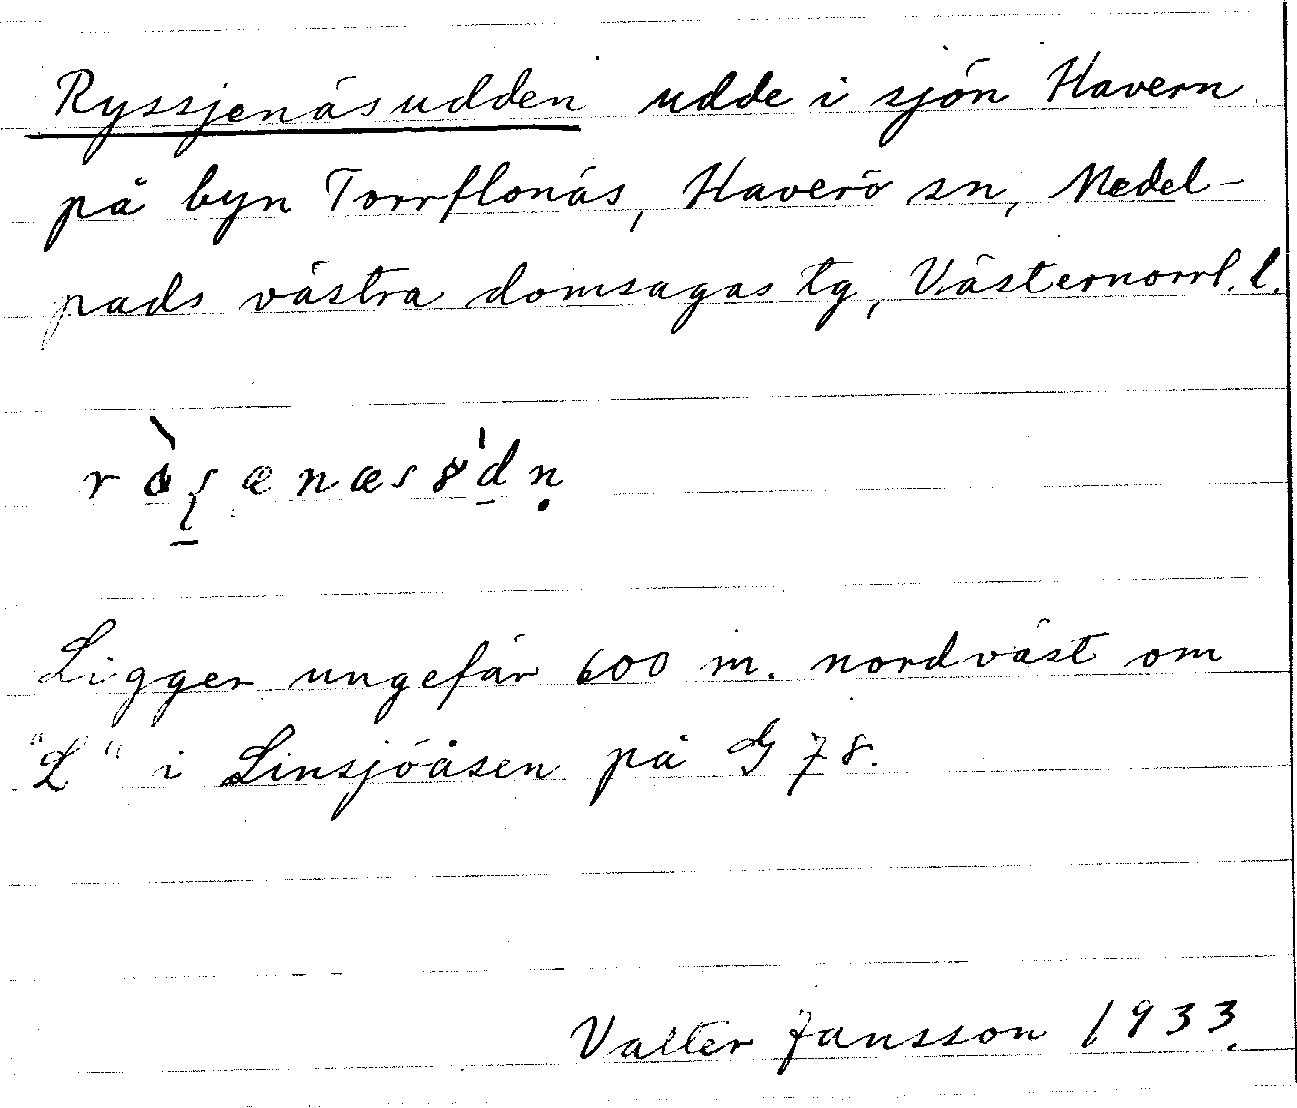 Ryssjenäsudden udde i sjön Havern
på byn Torrflonäs, Haverö sn, Medel-
pads västra domsagas tg, Västernorrl. l.
Ligger ungefär 600 m. nordväst om
"L" i Linsjöåsen på G 78.
Valter Jansson 1933.